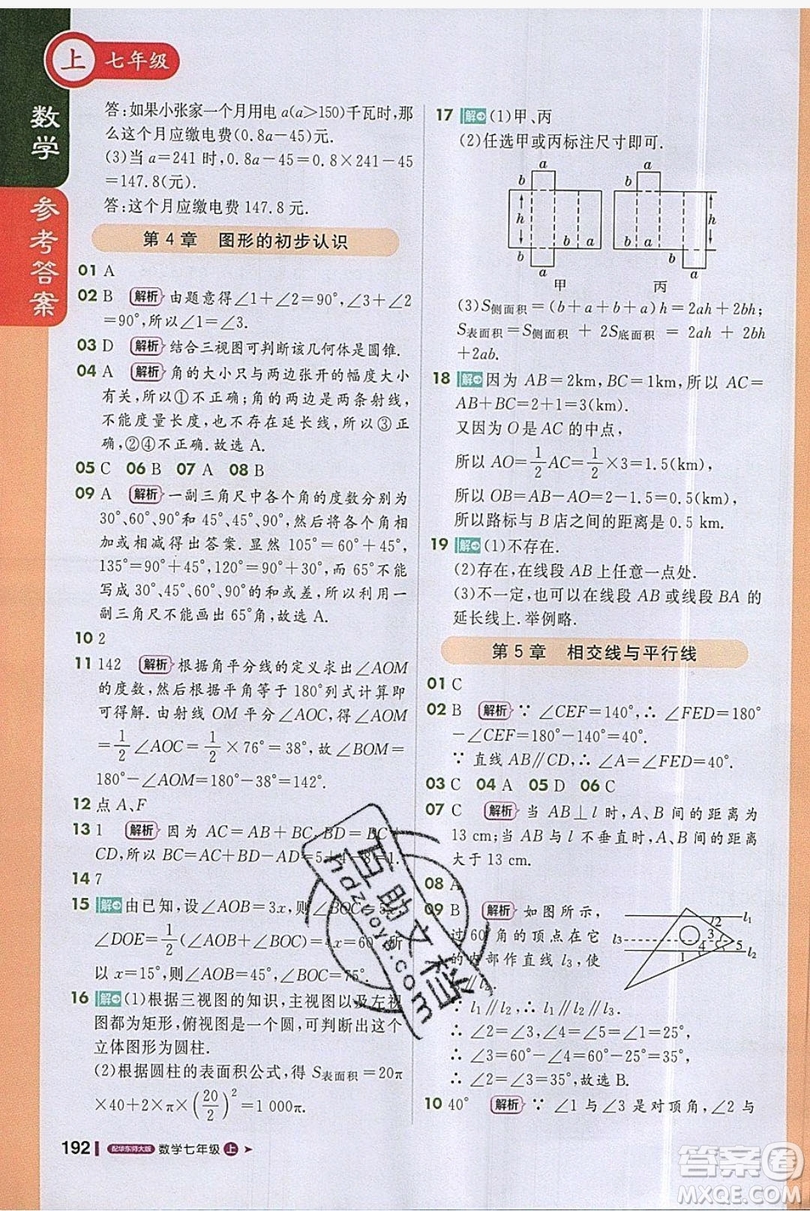 上 七年级
数学
参考答案
答:如果小张家一个月用电a(a>150)千瓦时,那
么这个月应缴电费(0.8a-45)元.
(3)当a=241时,0.8a-45=0.8×241-45
=147.8(元).
答:这个月应缴电费147.8元.
第4章 图形的初步认识
01 A
02 B 解析 由题意得∠1+∠2=90°,∠3+∠2
=90°,所以∠1=∠3.
03 D 解析 结合三视图可判断该几何体是圆锥.
04 A 解析 角的大小只与两边张开的幅度大小
有关,所以①不正确;角的两边是两条射线,
不能度量长度,也不存在延长线,所以③正
确,②④不正确.故选A.
05 C 06 B 07 A 08 B
09 A 解析 一副三角尺中各个角的度数分别为
30°、60°、90°、45°、45°、90°,然后将各个角相
加或相减得出答案.显然105°=60°+45°,
135°=90°+45°,120°=90°+30°,而65°不能
写成30°、60°、45°、90°的和或差,所以利用一
副三角尺不能画出65°的角,故选A.
10 2
11 142 解析 根据角平分线的定义求出∠AOM
的度数,然后根据平角等于180°列式计算即
可得解.由射线OM平分∠AOC,得∠AOM
=1/2∠AOC=1/2×76°=38°,故∠BOM=
180°-∠AOM=180°-38°=142°.
12 点A、F
13 1 解析 因为AC=AB+BC,BD=BC+
CD,所以AC+BD=AB+BC+
14 7
15 解 由已知,设∠AOB=3x,则
∠DOE=1/2(∠AOB+∠BOC)=4x=60°,所
以x=15°,
16 解 (1)根据三视图的知识,主视图以及左视
图都为矩形,俯视图是一个圆,可得出这个
立体图形为圆柱.
(2)根据圆柱的表面积公式,得S表面积=20π
×40+2×π×(20/2)²=1000π.
192 配华东师大版 数学七年级 上
17 解 (1)甲、丙
(2)任选甲或丙标注尺寸即可.
a a
b b b b
h h h h
a a
甲 丙
(3)S侧面积=(b+a+b+a)h=2ah+2bh,
S表面积=S侧面积+2S底面积=2ah+2bh
+2ab.
18 解 因为AB=2km,BC=1km,所以AC=
AB+BC=2+1=3(km).
又因为O是AC的中点,
所以AO=1/2AC=1/2×3=1.5(km).
所以OB=AB-AO=2-1.5=0.5(km),
所以路标与B店之间的距离是0.5 km.
19 解 (1)不存在.
(2)存在,在线段AB上任意一点处.
(3)不一定,也可以在线段AB或线段BA的
延长线上.举例略.
第5章 相交线与平行线
01 C
02 B 解析 ∵∠CEF=140°,∴∠FED=180°
-∠CEF=180°-140°=40°.
∵直线AB∥CD,∴∠A=∠FED=40°.
03 C 04 A 05 D 06 C
07 C 解析 当AB⊥l时,A、B之间的距离为
13 cm;当AB与l不垂直时,A、B之间的距离
大于13 cm.
08 A
09 B 解析 如图所示,
过60°角的顶点在它
的内部作直线l3,使
l1∥l3
∵l1∥l2,∴l1∥l2∥l3
∴∠2=∠3,∠1=∠4=25°,
∴∠3=60°-∠4=60°-25°=35°,
∴∠2=∠3=35°,故选B.
l1
l3
l2
3
1 4 5
10 40° 解析 ∵∠1与∠3是对顶角,∠2与
互助文档
hdzuoye.com
答案圈
MXQE.COM